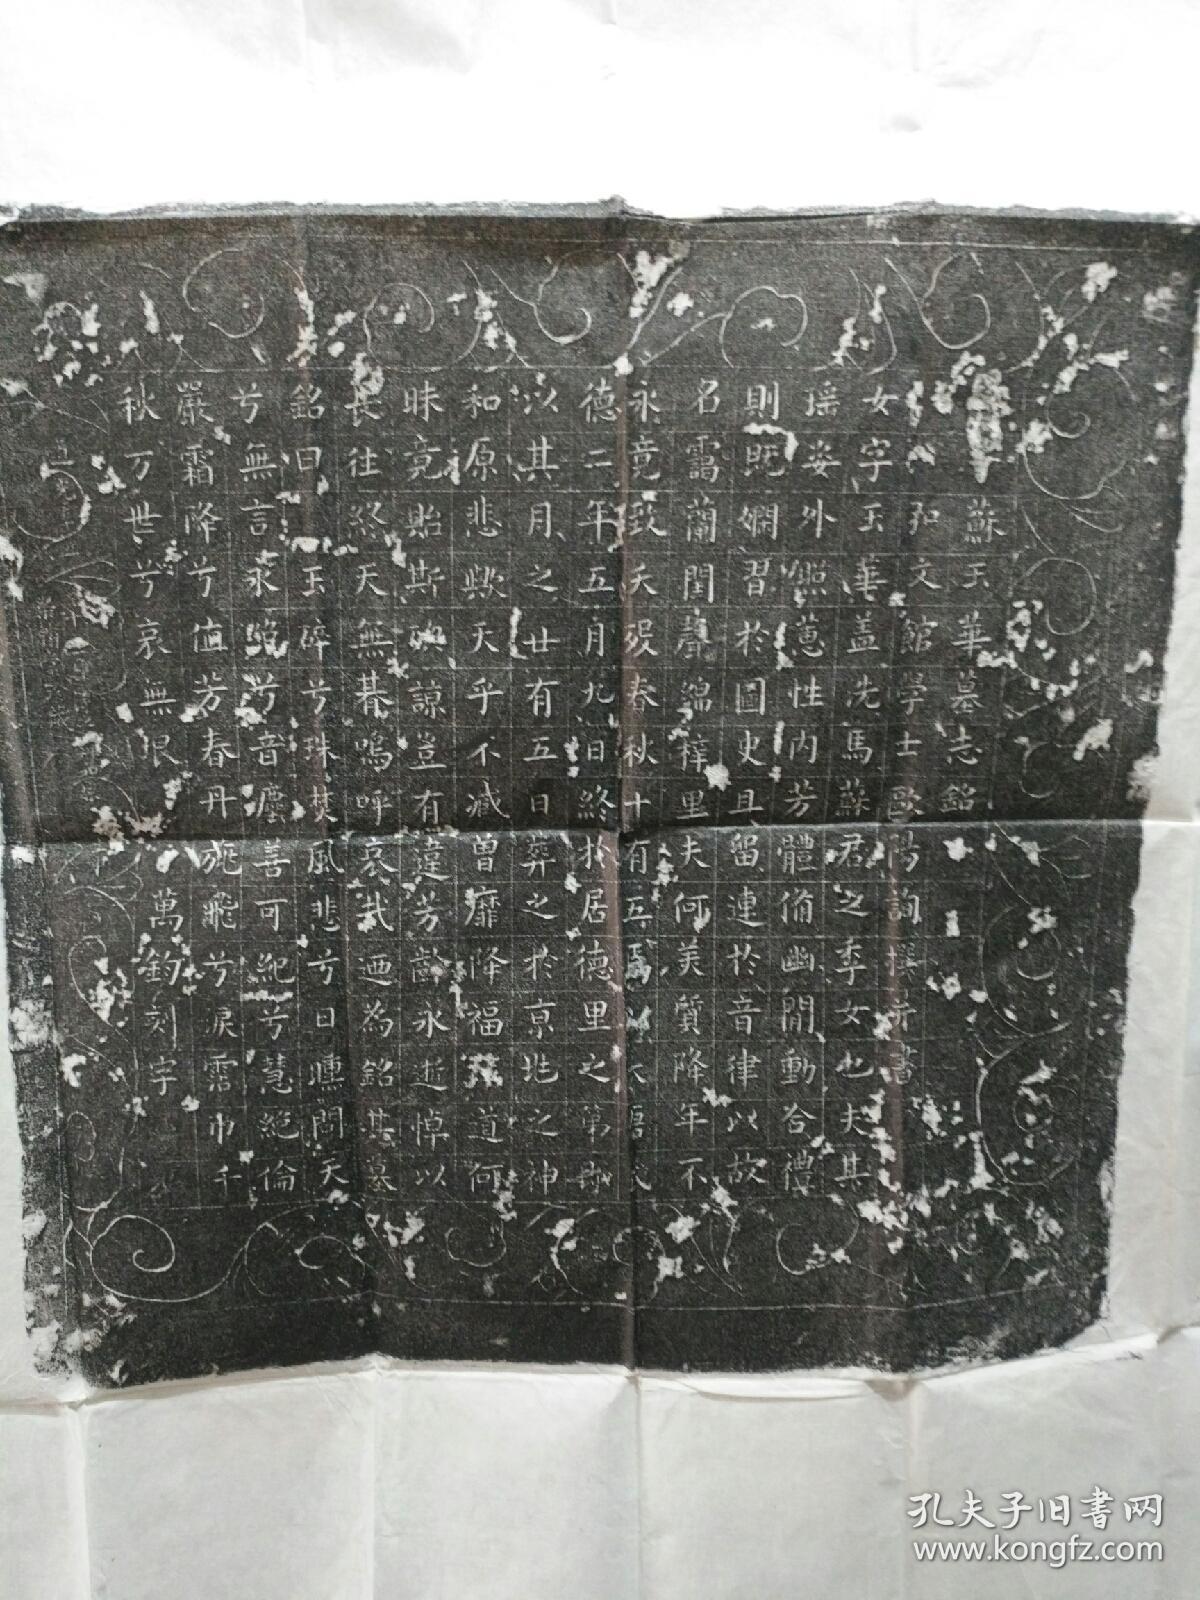 蘇玉華墓志銘
弘文館學士歐陽詢撰并書
女字玉華盖洗馬蘇君之季女也夫其
瑶姿外照蕙性内芳體俻幽閒動合禮
則既嫻習於圖史且留連於音律以故
名靄蘭閨聲綿梓里夫何美質降年不
永竟致夭娱春秋十有五
德二年五月九日終於居德里之第
以其月之廿有五日葬之於京地之神
和原悲歟天乎不臧曽靡降福道何
昧竟貽斯諒豈有違芳齡永逝悼以
長往終天無朞嗚呼哀哉迺為銘其墓
銘曰玉碎兮珠焚風悲兮日曛問天
兮無言求兮音塵善可紀兮慧絶倫
嚴霜降兮值芳春丹旐飛兮淚霑巾千
秋万世兮哀無垠 萬鈞刻字
孔夫子旧书网
www.kongfz.com